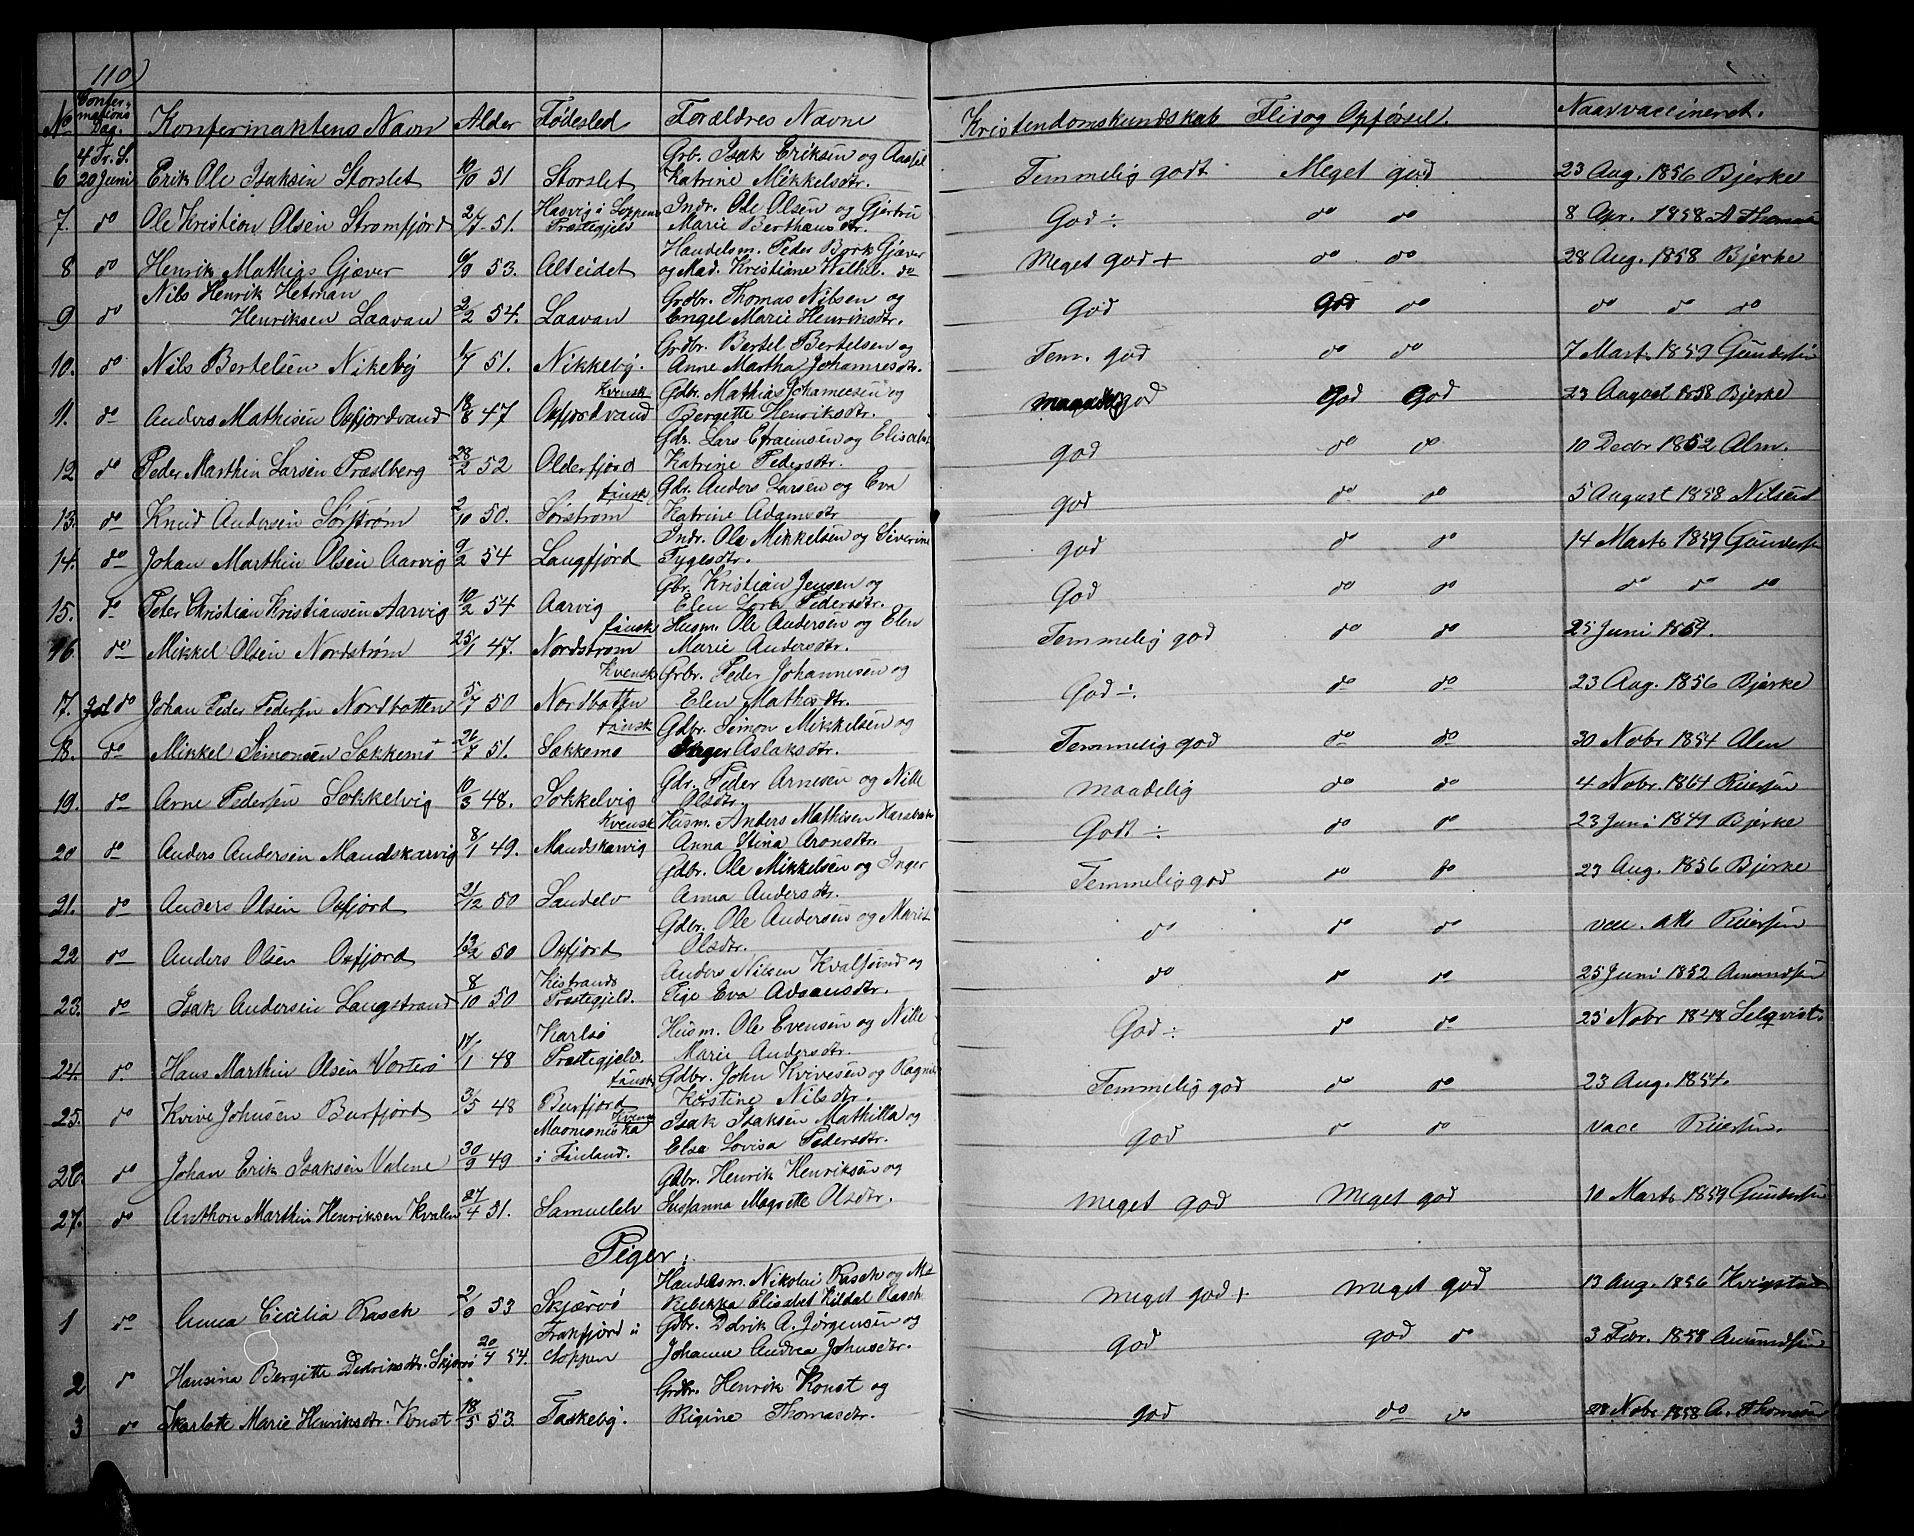 110)
No Confermations Dag. Konfermantens Navn Alder Fødested Forældres Navne Kristendomskundskab Flid og Opførsel. Naar vaccineret.
4 Tr. S. Grb. Isak Eriksen og
6 20 Juni Erik Ole Isaksen Storslet 51 Storslet Katrine Mikkelsdtr. Temmelig godt Meget god 23 Aug. 1856 Bjerke
Hasvig i Loppens Indr. Ole Olsen og Gjertru
7. do Ole Kristian Olsen Strømfjord 51. Præstegjeld Marie Berthausdtr. God ÷ do do 8 Apr. 1858 A Thomsen
Handelsm. Peder Bork Gjæver
8 do Henrik Mathias Gjæver 6/9 53. Alteidet og Mad. Kristiane Wilhel. do Meget god + do do 28 Aug. 1858 Bjerke
Nils Henrik Hetman Grdbr. Thomas Nilsen og
9 do Henriksen Laavan 2/2 54. Laavan Engel Marie Henriksdtr. God God do do do do
Grdbr. Bertel Bertelsen og
10. do Nils Bertelsen Nikeby 1/7 51. Nikkeby. Anne Martha Johannesdtr. Tem. god do do 7 Marts 1859 Gundersen
Kvensk Gdbr. Mathias Johannesen og
11. do Anders Mathisen Oxfjordvand 18/8 47 Oxfjordvand Bergette Henriksdtr. god God God 23 August 1858 Bjerke
Gdr. Lars Efraimsen og Elisabet
12 do Peder Marthin Larsen Præstberg 28/2 52 Olderfjord Katrine Pedersdtr. god do do 10 Decbr 1852 Alm.
finsk Gdr. Anders Larsen og Eva
13. do Knud Andersen Sørstrøm 2/10 50. Sørstrøm Katrine Adamsdtr god do do 5 August 1858 Nilsen
Indr. Ole Mikkelsen og Siverine
14. do Johan Marthin Olsen Aarvig 9/2 54 Langfjord Tygesdtr. god do do 14 Marts 1859 Gundersen
Gbr. Kristian Jensen og
15. do Peter Christian Kristiansen Aarvig 10/2 54 Aarvig Elen Pedersdtr. God do do do do do
finsk Husm. Ole Andersen og Elen
16. do Mikkel Olsen Nordstrøm 25/1 47. Nordstrøm Marie Andersdtr. Temmelig god do do 25 Juni 1854.
Kvensk Grbr. Peder Johannesen og
17. do Johan Peder Pedersen Nordbotten 5/7 50 Nordbotten Elen Mathisdtr. God ÷. do do 23 Aug. 1856 Bjerke
finsk Gdbr. Simon Mikkelsen og
18. do Mikkel Simonsen Søkkemo 26/7 51. Søkkemo Inger Aslaksdtr. Temmelig god do do 30 Nobr 1854 Alm
Gdr. Peder Arnesen og Nille
19. do Arne Pedersen Søkkelvig 10/3 48. Søkkelvig Olsdtr maadelig do do 4 Nobr. 1864 Riiersen
Kvensk Husm. Anders Mathisen
20 do Anders Andersen Maudskarvig 8/1 49. Maudskarvig Anna Stina Aronsdtr. Godt ÷ do do 23 Juni 1849 Bjerke
Gdbr. Ole Mikkelsen og Inger
21. do Anders Olsen Oxfjord 21/12 50 Sandelv Anna Andersdtr. Temmelig god do do 23 Aug. 1856 Bjerke
Gdbr. Ole Andersen og Marit
22 do Anders Olsen Oxfjord 13/2 50 Oxfjord Olsdtr. do do do vac. Riiersen
Kistrands Anders Nilsen Kvalsund og
23. do Isak Andersen Langstrand 8/10 50 Præstegjeld. Pige Eva Adamsdtr. do do do 25 Juni 1852 Amundsen
Karlsø Husm. Ole Evensen og Nille
24. do. Hans Marthin Olsen Vortero 17/1 48 Præstegjeld. Marie Andersdtr. God ÷ do do 25 Nobr 1848 Selqvist
finsk Gdbr. John Kvivesen og Ragnil
25. do Kvive Johnsen Burfjord 3/5 48 Burfjord Kerstine Nilsdtr. Temmelig god do do 23 Aug. 1854.
Kvensk Isak Isaksen Mathilla og
26. do Johan Erik Isaksen Valene 30/9 49 i Finland. Elsa Lovisa Pedersdtr. god do do vacc Riiersen.
Gdbr. Henrik Henriksen og
27. do Anthon Marthin Henriksen Kvalen 27/4 51. Samuelelv Susanna Magrette Olsdtr. meget god Meget god 10 Marts 1859 Gundersen
Piger.
Handelsm. Nikolai Rasch og M.
1 do Anna Cecilia Rasch 53 Skjærvø Rebekka Elisabet Kildal Rasch meget god + meget god 13 Aug. 1856
Frakfjord i Gdbr. Didrik A. Jørgensen og
2 do Hansina Bergitte Dedriksdtr. Skjærvø 20/4 54. Loppen Johanne Andrea Johnsdtr. god god do 3 Febr. 1858 Amundsen
Grdbr. Henrik Konst og
3 do Skarlote Marie Henriksdtr. Konst 18/5 53. Taskeby. Rigine Thomasdtr. god do do 28 Nobr 1858 A. Thomsen